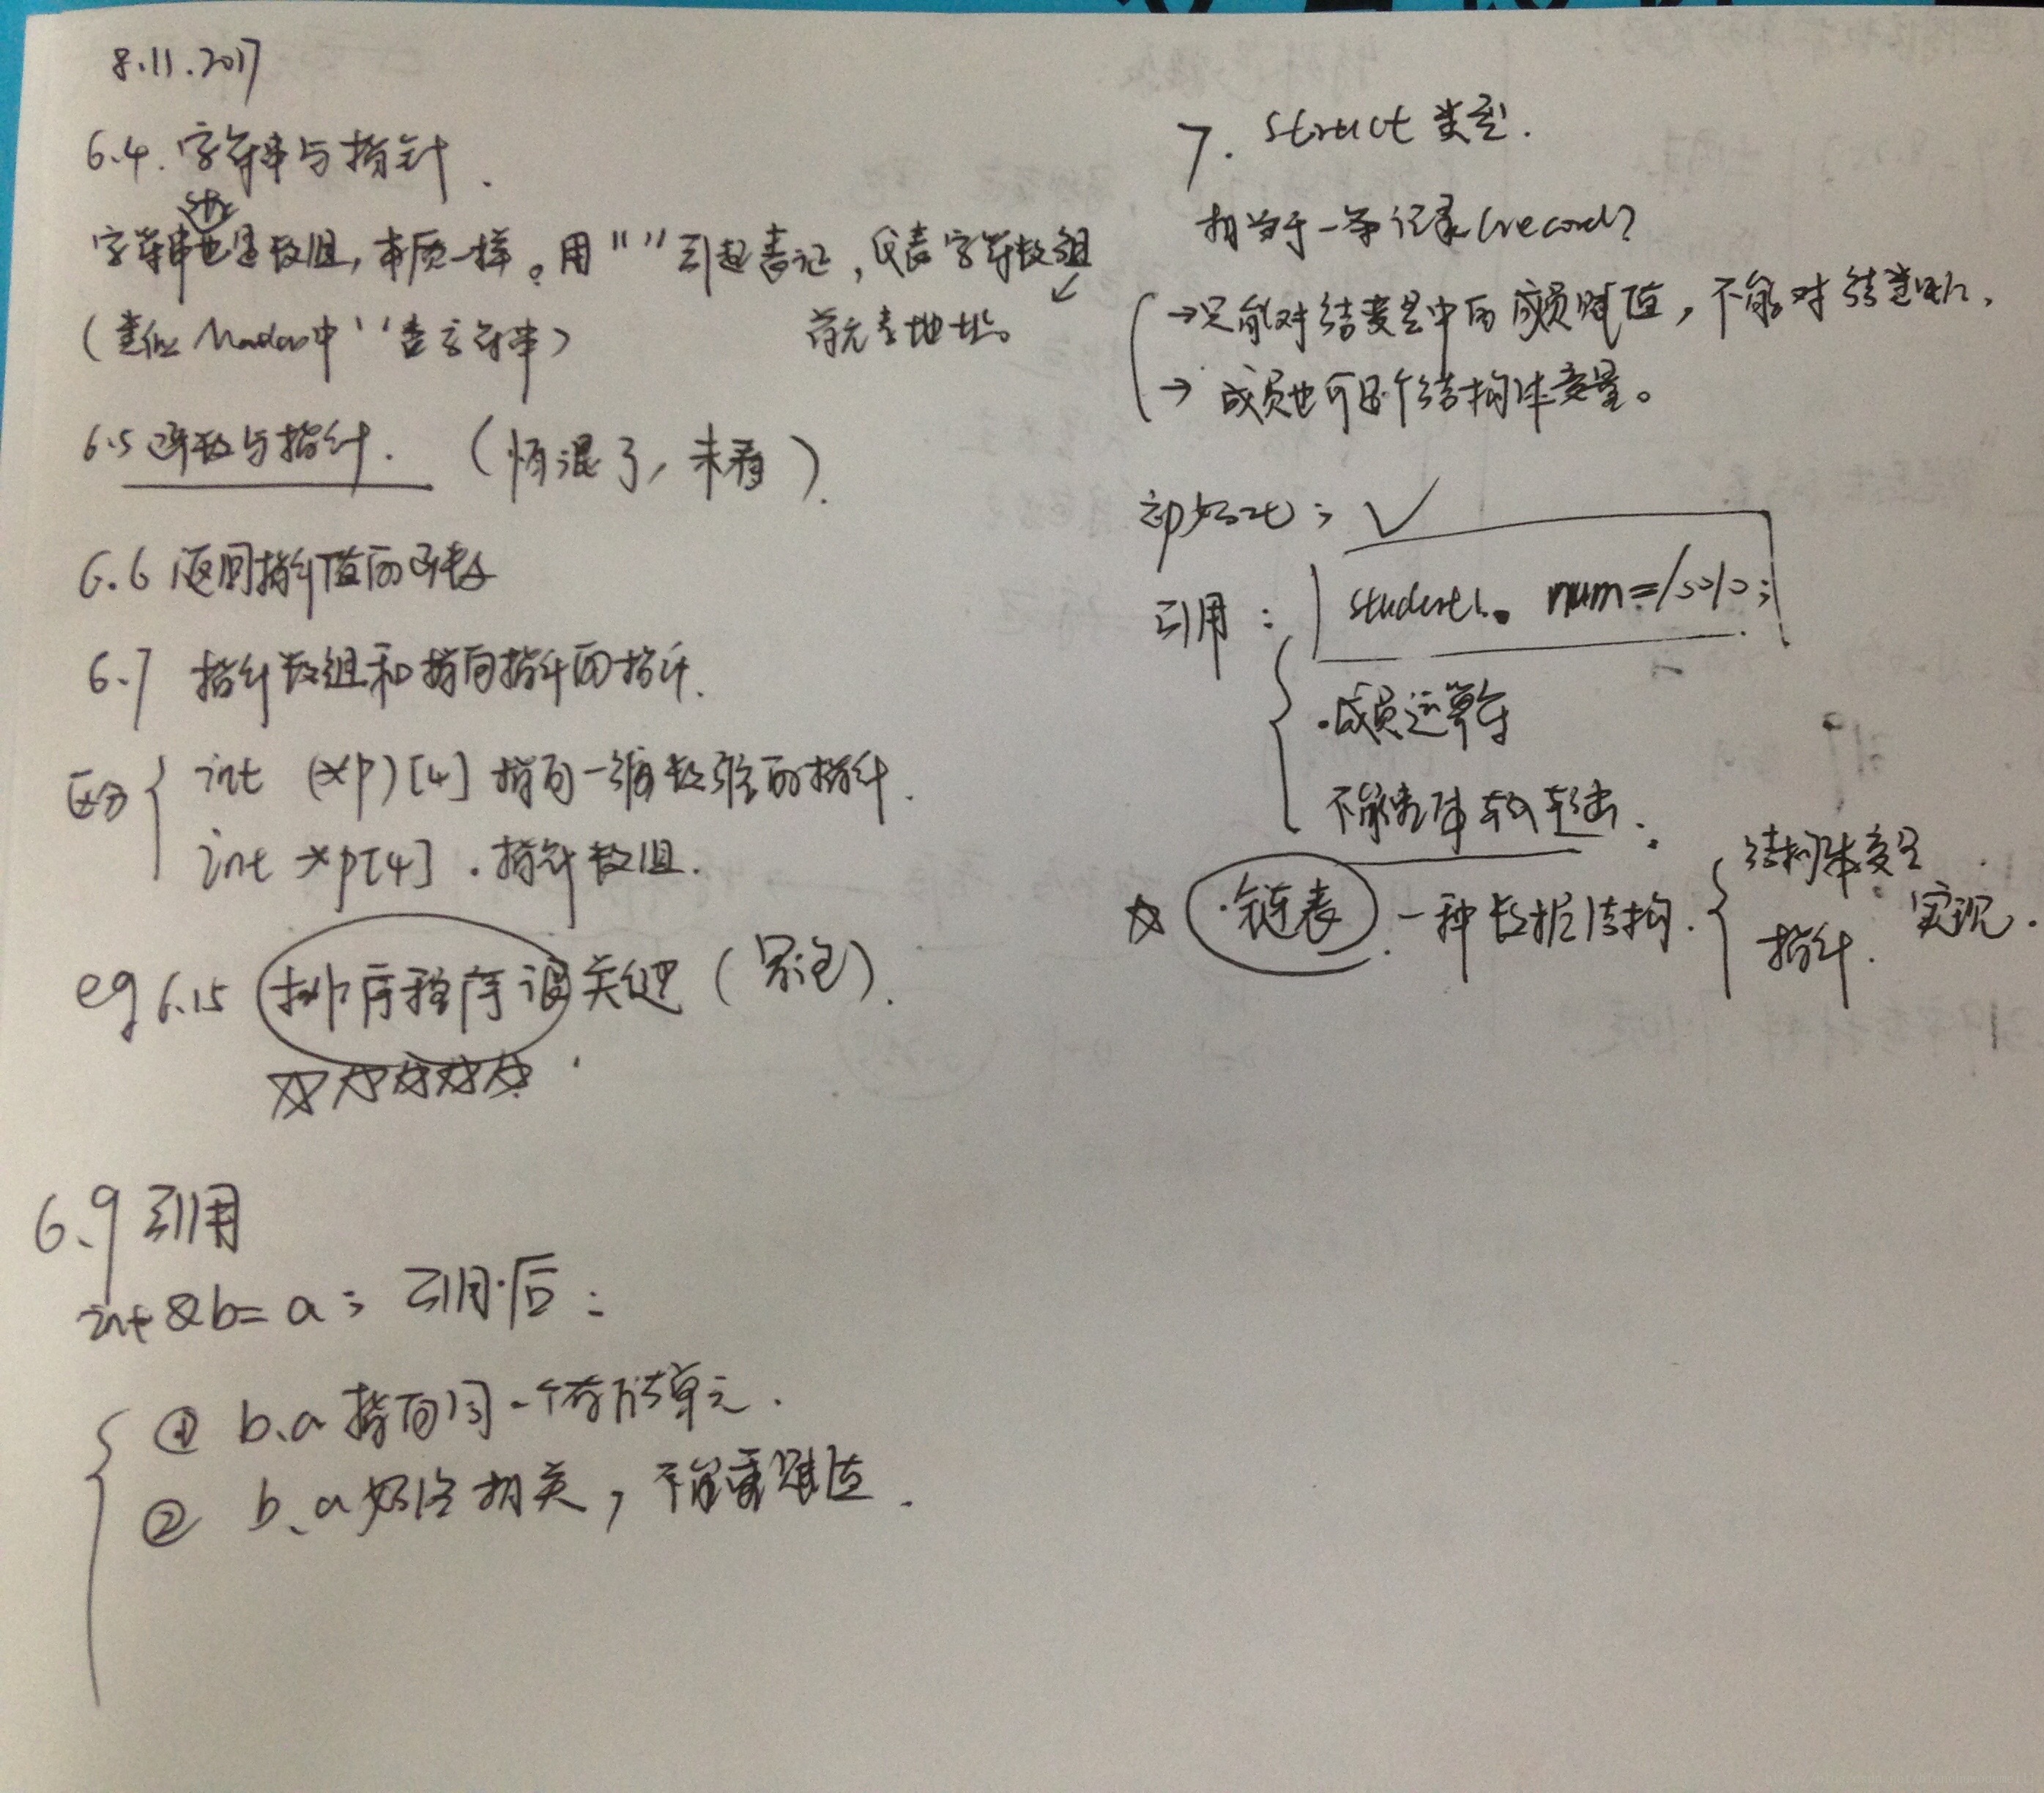 8.11.2017
6.4. 字符串与指针.
字符串也是数组,本质一样。用""引起者,代表字符数组
首元素地址。
(类似Matlab中''字符串)
6.5 函数与指针. (怕混了,未看).
6.6 返回指针值的函数
6.7 指针数组和指向指针的指针.
区分
int (*p)[4] 指向一维数组的指针.
int *p[4]. 指针数组.
eg 6.15 排序程序 关键 ( ).
☆☆☆☆☆.
6.9 引用
int &b = a; 引用后:
① b、a 指向同一个存储单元.
② b、a 始终相关,不能重赋值.
7. struct 类型.
相当于一条记录(record)
→只能对结变量中的成员赋值,不能对结变.
→ 成员也可是个结构体变量。
初始化: ✓
引用: student1. num=1010;
.成员运算符
不能整体输出.
☆ 链表. 一种数据结构.
结构体变量
指针. 实现.